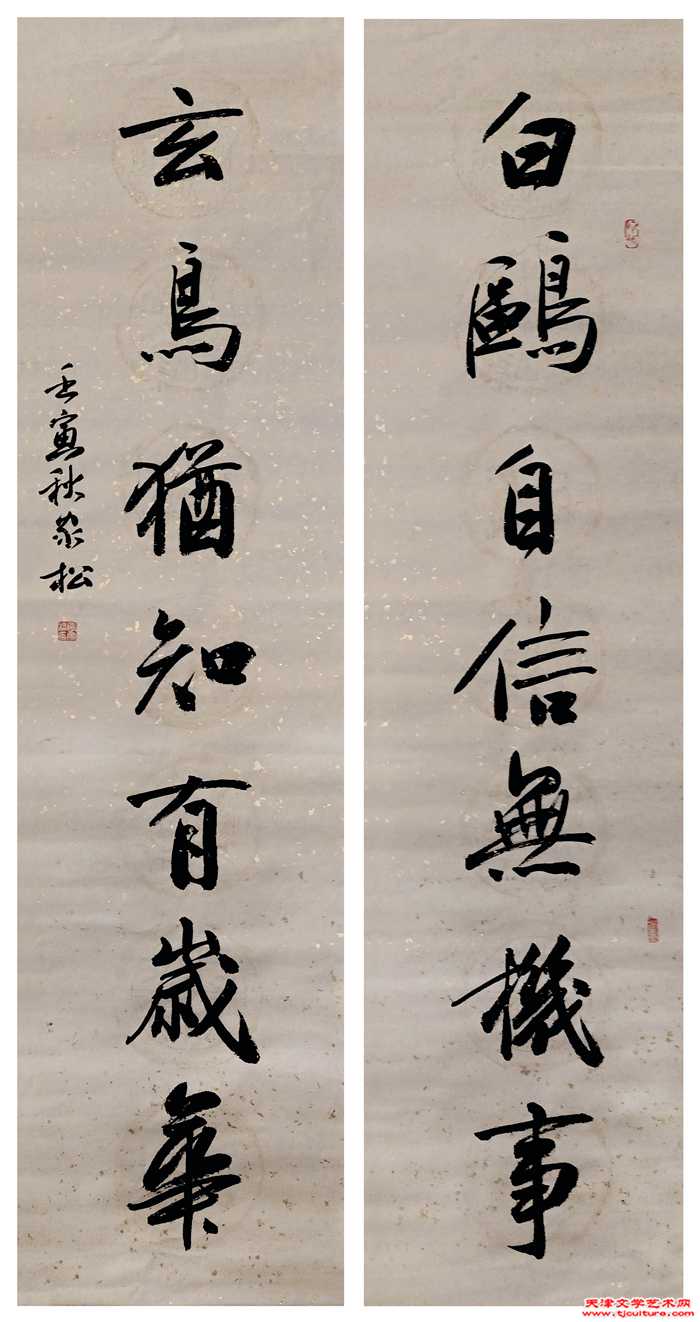 白鷗自信無機事
玄鳥猶知有歲華
壬寅秋敬松
天津文学艺术网
www.tjculture.com